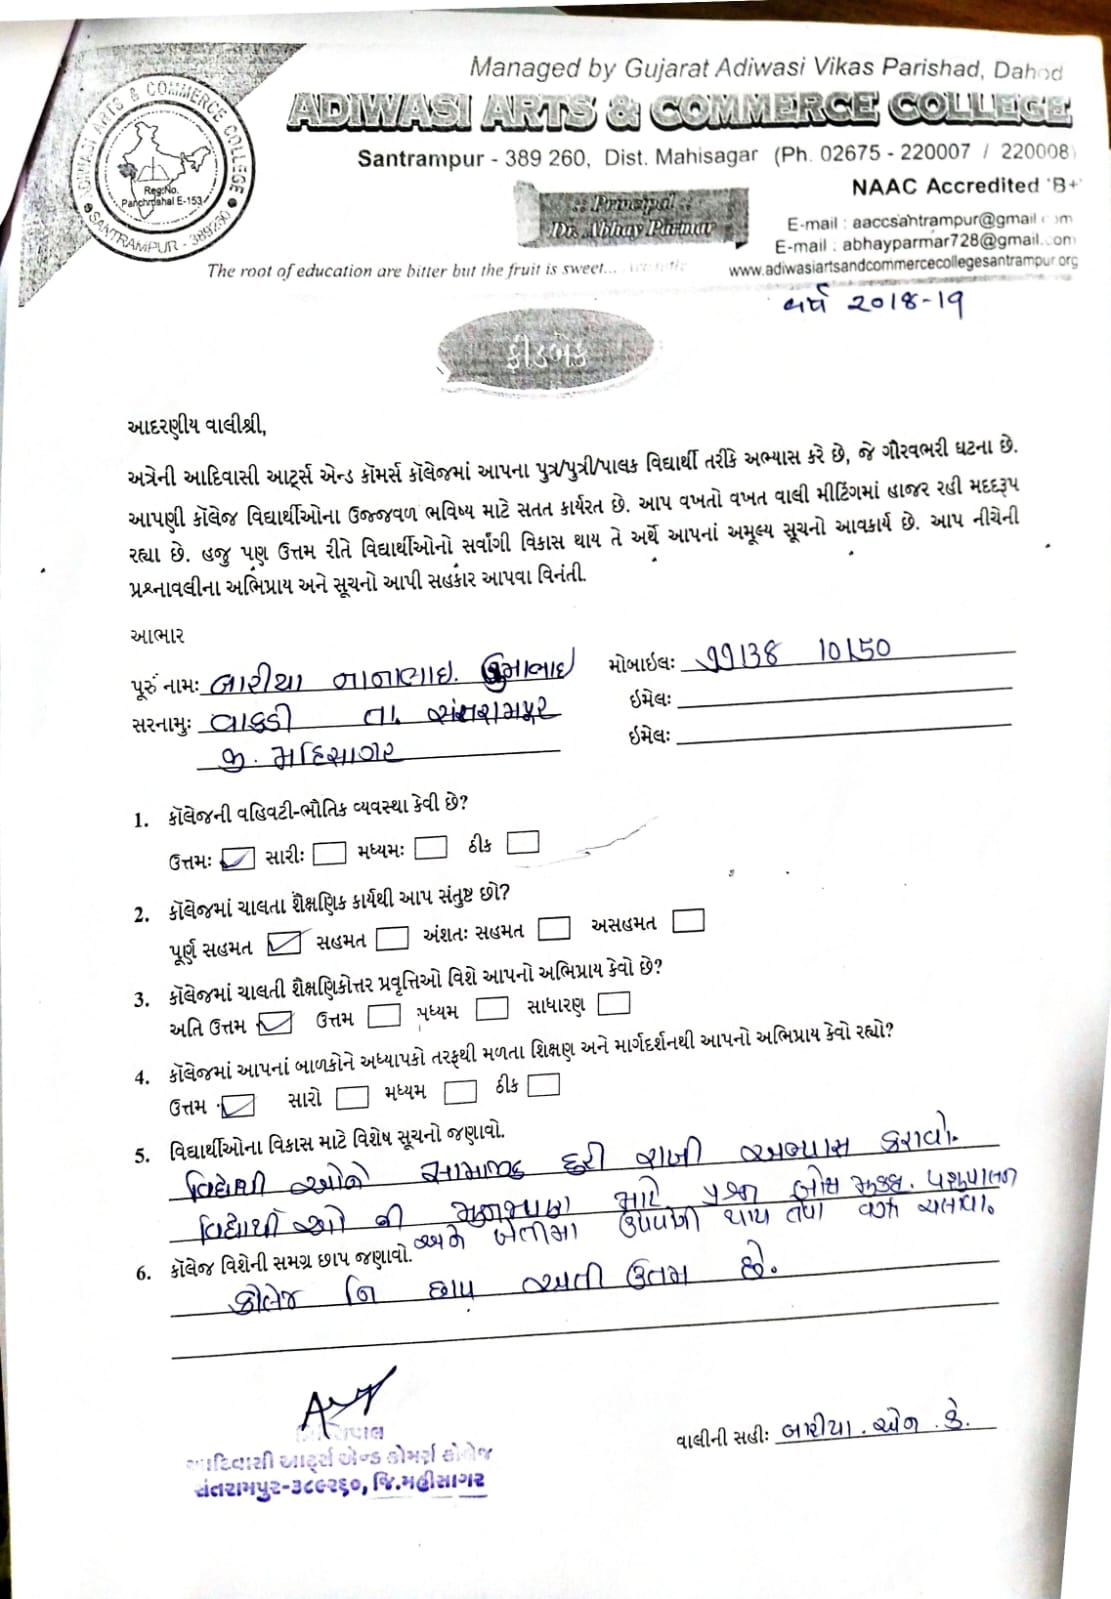 ADIWASI ARTS & COMMERCE COLLEGE
SANTRAMPUR - 389260
Reg.No.
Panchmahal E-153
Managed by Gujarat Adiwasi Vikas Parishad, Dahod
ADIWASI ARTS & COMMERCE COLLEGE
Santrampur - 389 260, Dist. Mahisagar (Ph. 02675 - 220007 / 220008)
NAAC Accredited 'B+'
:: Principal ::
Dr. Abhay Parmar
E-mail : aaccsahtrampur@gmail.com
E-mail : abhayparmar728@gmail.com
The root of education are bitter but the fruit is sweet...
www.adiwasiartsandcommercecollegesantrampur.org
વર્ષ ૨૦૧૮-૧૯
ફીડબેક
આદરણીય વાલીશ્રી,
અત્રેની આદિવાસી આર્ટ્સ એન્ડ કૉમર્સ કૉલેજમાં આપના પુત્ર/પુત્રી/પાલક વિદ્યાર્થી તરીકે અભ્યાસ કરે છે, જે ગૌરવભરી ઘટના છે.
આપણી કૉલેજ વિદ્યાર્થીઓના ઉજ્જવળ ભવિષ્ય માટે સતત કાર્યરત છે. આપ વખતો વખત વાલી મીટિંગમાં હાજર રહી મદદરૂપ
રહ્યા છે. હજુ પણ ઉત્તમ રીતે વિદ્યાર્થીઓનો સર્વાંગી વિકાસ થાય તે અર્થે આપનાં અમૂલ્ય સૂચનો આવકાર્ય છે. આપ નીચેની
પ્રશ્નાવલીના અભિપ્રાય અને સૂચનો આપી સહકાર આપવા વિનંતી.
આભાર
પૂરું નામઃ બારીયા નાનાભાઇ
મોબાઇલઃ 99138 10150
સરનામુઃ વાકડી તા. સંતરામપુર
ઇમેલઃ
જી. મહિસાગર
ઇમેલઃ
1. કૉલેજની વહિવટી-ભૌતિક વ્યવસ્થા કેવી છે?
ઉત્તમઃ સારીઃ મધ્યમઃ ઠીક
2. કૉલેજમાં ચાલતા શૈક્ષણિક કાર્યથી આપ સંતુષ્ટ છો?
પૂર્ણ સહમત સહમત અંશતઃ સહમત અસહમત
3. કૉલેજમાં ચાલતી શૈક્ષણિકોત્તર પ્રવૃત્તિઓ વિશે આપનો અભિપ્રાય કેવો છે?
અતિ ઉત્તમ ઉત્તમ મધ્યમ સાધારણ
4. કૉલેજમાં આપનાં બાળકોને અધ્યાપકો તરફથી મળતા શિક્ષણ અને માર્ગદર્શનથી આપનો અભિપ્રાય કેવો રહ્યો?
ઉત્તમ સારો મધ્યમ ઠીક
5. વિદ્યાર્થીઓના વિકાસ માટે વિશેષ સૂચનો જણાવો.
ઓને રાખી અભ્યાસ કરાવો.
વિદ્યાર્થી ઓ ની માટે પ્રશ્ન પશુપાલન
અને ખેતીમા ઉપયોગી થાય તેવા
6. કૉલેજ વિશેની સમગ્ર છાપ જણાવો.
કોલેજ નિ છાપ અતી ઉતમ છે.
પ્રિન્સિપાલ
આદિવાસી આર્ટ્સ એન્ડ કોમર્સ કોલેજ
સંતરામપુર-૩૮૯૨૬૦, જિ.મહીસાગર
વાલીની સહીઃ બારીયા. એન. કે.